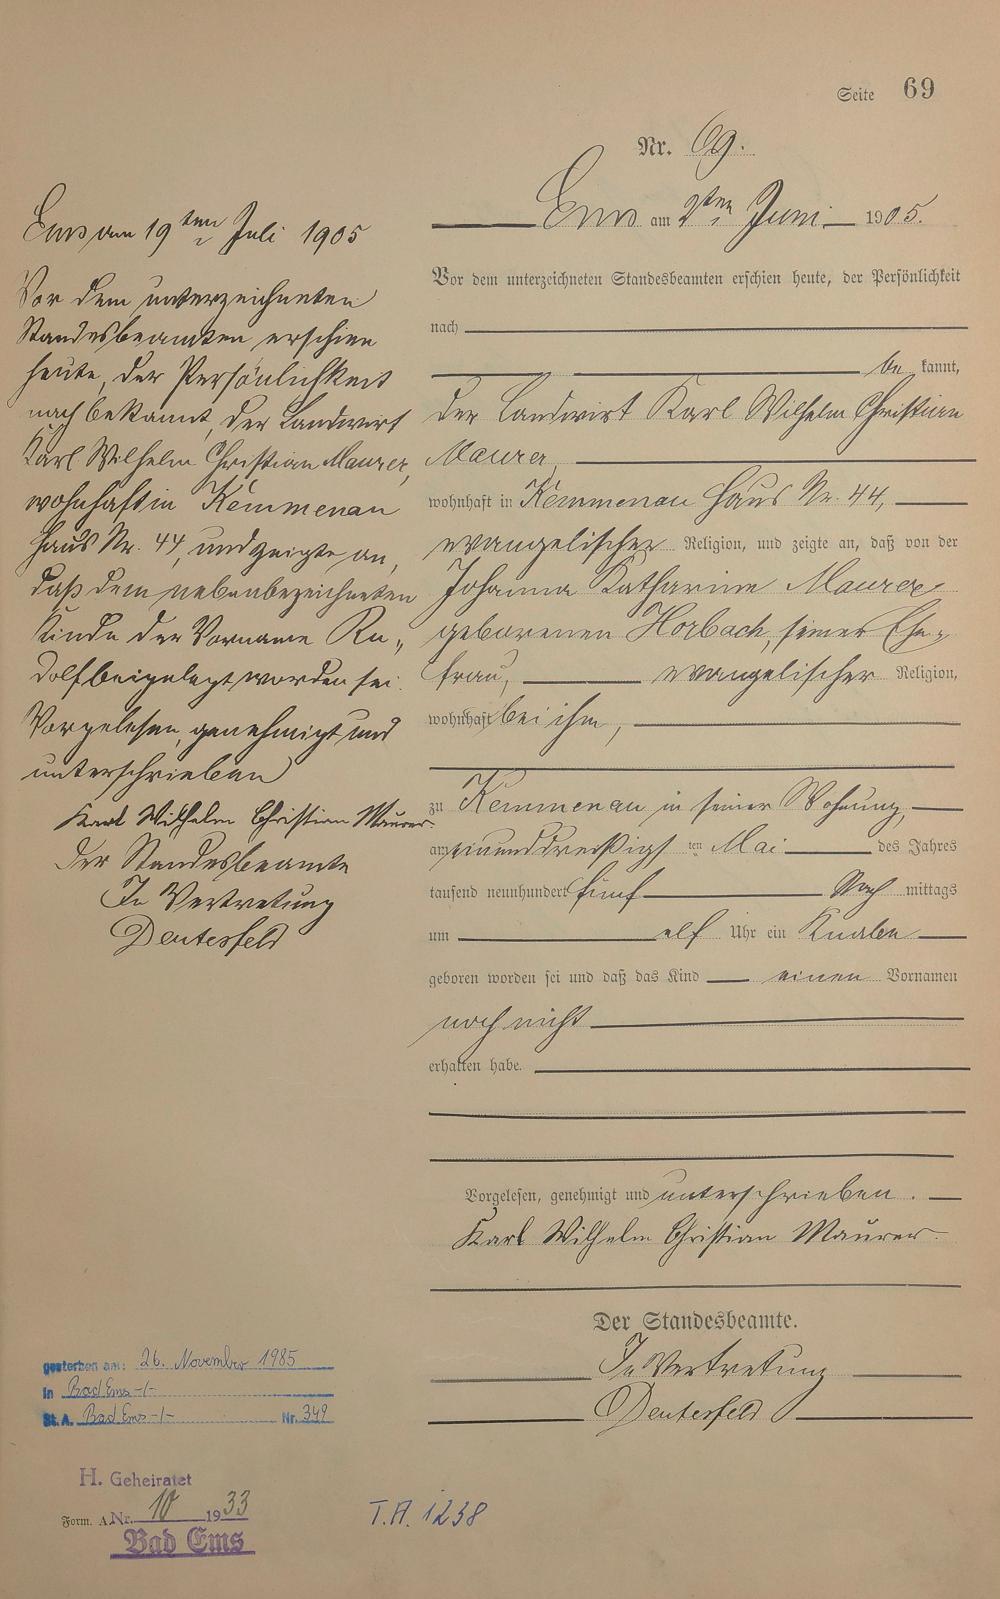 Seite 69
Nr. 69.
Ems am 2ten Juni 1905.
Vor dem unterzeichneten Standesbeamten erschien heute, der Persönlichkeit
nach
be kannt,
der Landwirt Karl Wilhelm Christian
Maurer
wohnhaft in Kemmenau Haus Nr. 44,
evangelischer Religion, und zeigte an, daß von der
Johanna Katharine Maurer
geborenen Horbach, seiner Ehe-
frau,
evangelischer Religion,
wohnhaft bei ihm,
zu Kemmenau in seiner Wohnung,
am einunddreißigsten Mai des Jahres
tausend neunhundert fünf Nach mittags
um elf Uhr ein Knabe
geboren worden sei und daß das Kind einen Vornamen
noch nicht
erhalten habe.
Vorgelesen, genehmigt und unterschrieben.
Karl Wilhelm Christian Maurer
Der Standesbeamte.
In Vertretung
Deutesfeld
Ems am 19ten Juli 1905
Vor dem unterzeichneten
Standesbeamten erschien
heute, der Persönlichkeit
nach bekannt, der Landwirt
Karl Wilhelm Christian Maurer,
wohnhaft in Kemmenau
Haus Nr. 44, und zeigte an,
daß dem nebenbezeichneten
Kinde der Vorname Ru-
dolf beigelegt worden sei.
Vorgelesen, genehmigt und
unterschrieben
Karl Wilhelm Christian Maurer.
Der Standesbeamte
In Vertretung
Deutesfeld
gestorben am: 26. November 1985
in Bad Ems -/-
St.A. Bad Ems -/- Nr. 349
H. Geheiratet
Form. A. Nr. 10 1933
Bad Ems
T.A. 1238